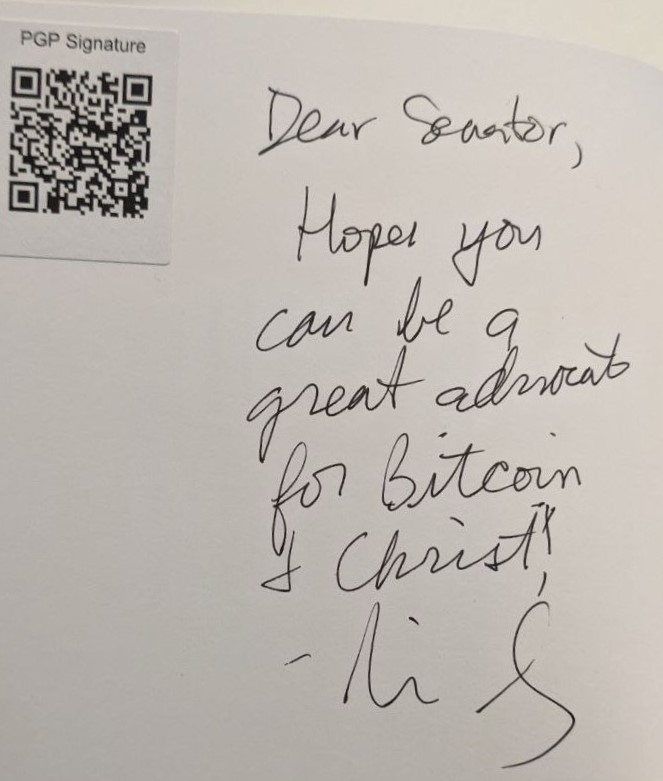 PGP Signature
Dear Senator,
Hope you
can be a
great advocate
for Bitcoin
& Christ!